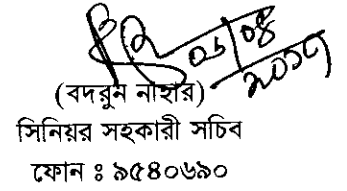 ০১/০৪
২০১৮
(বদরুন নাহার)
সিনিয়র সহকারী সচিব
ফোন ঃ ৯৫৪০৬৯০